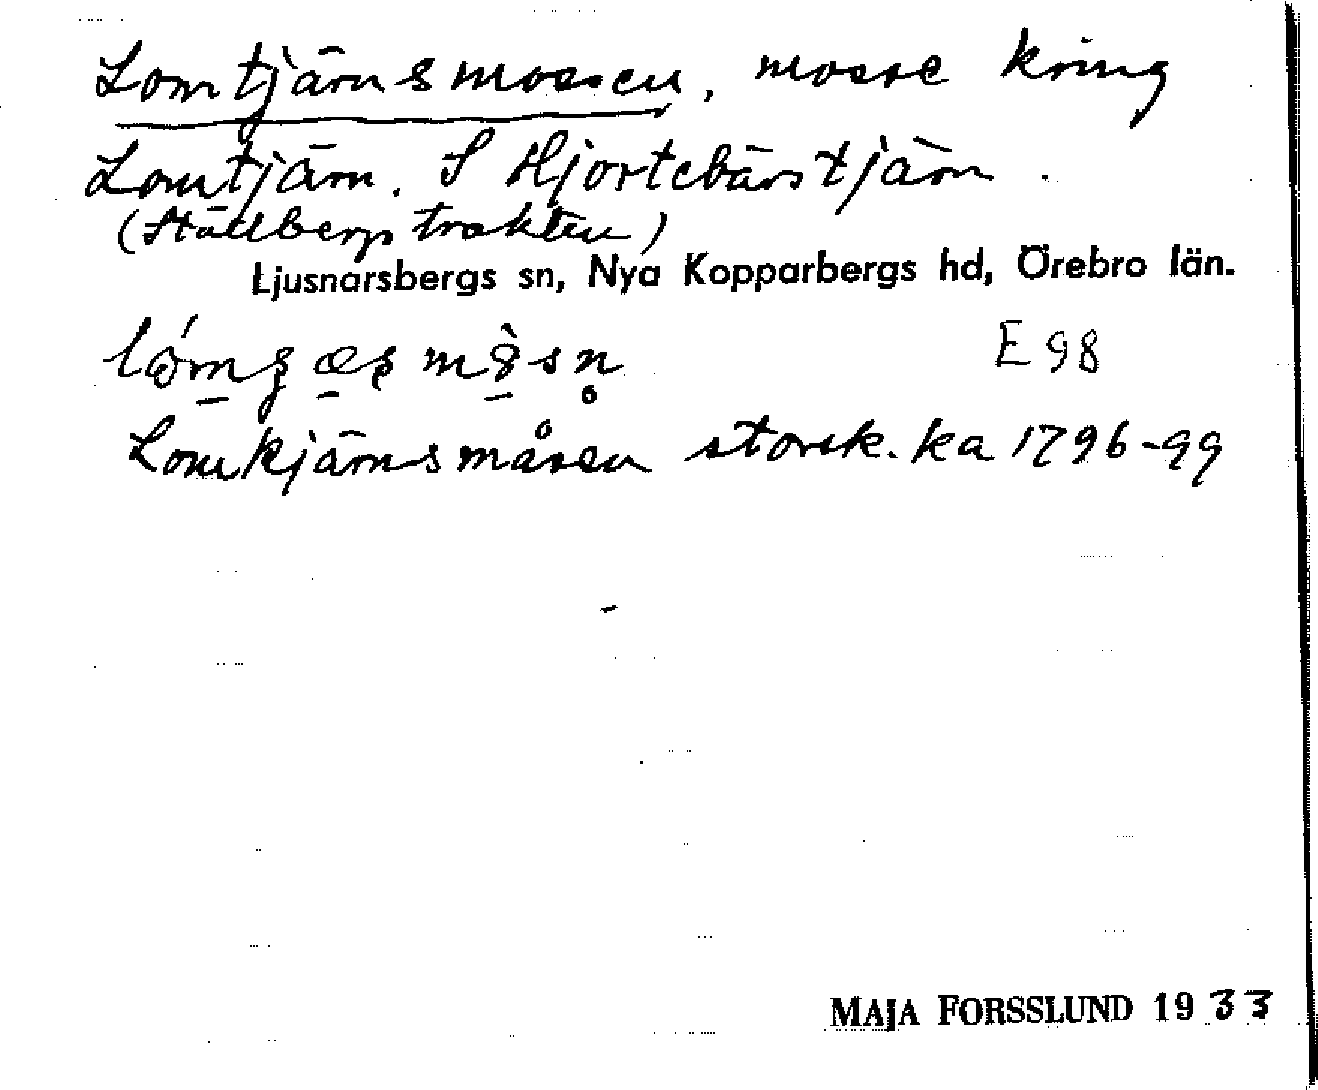 Lomtjärnsmossen, mosse kring
Lomtjärn. S Hjortebärstjärn.
(Ställbergs trakten)
Ljusnarsbergs sn, Nya Kopparbergs hd, Örebro län.
E 98
Lomkjärnsmåsen storsk. ka 1796-99
MAJA FORSSLUND 1933